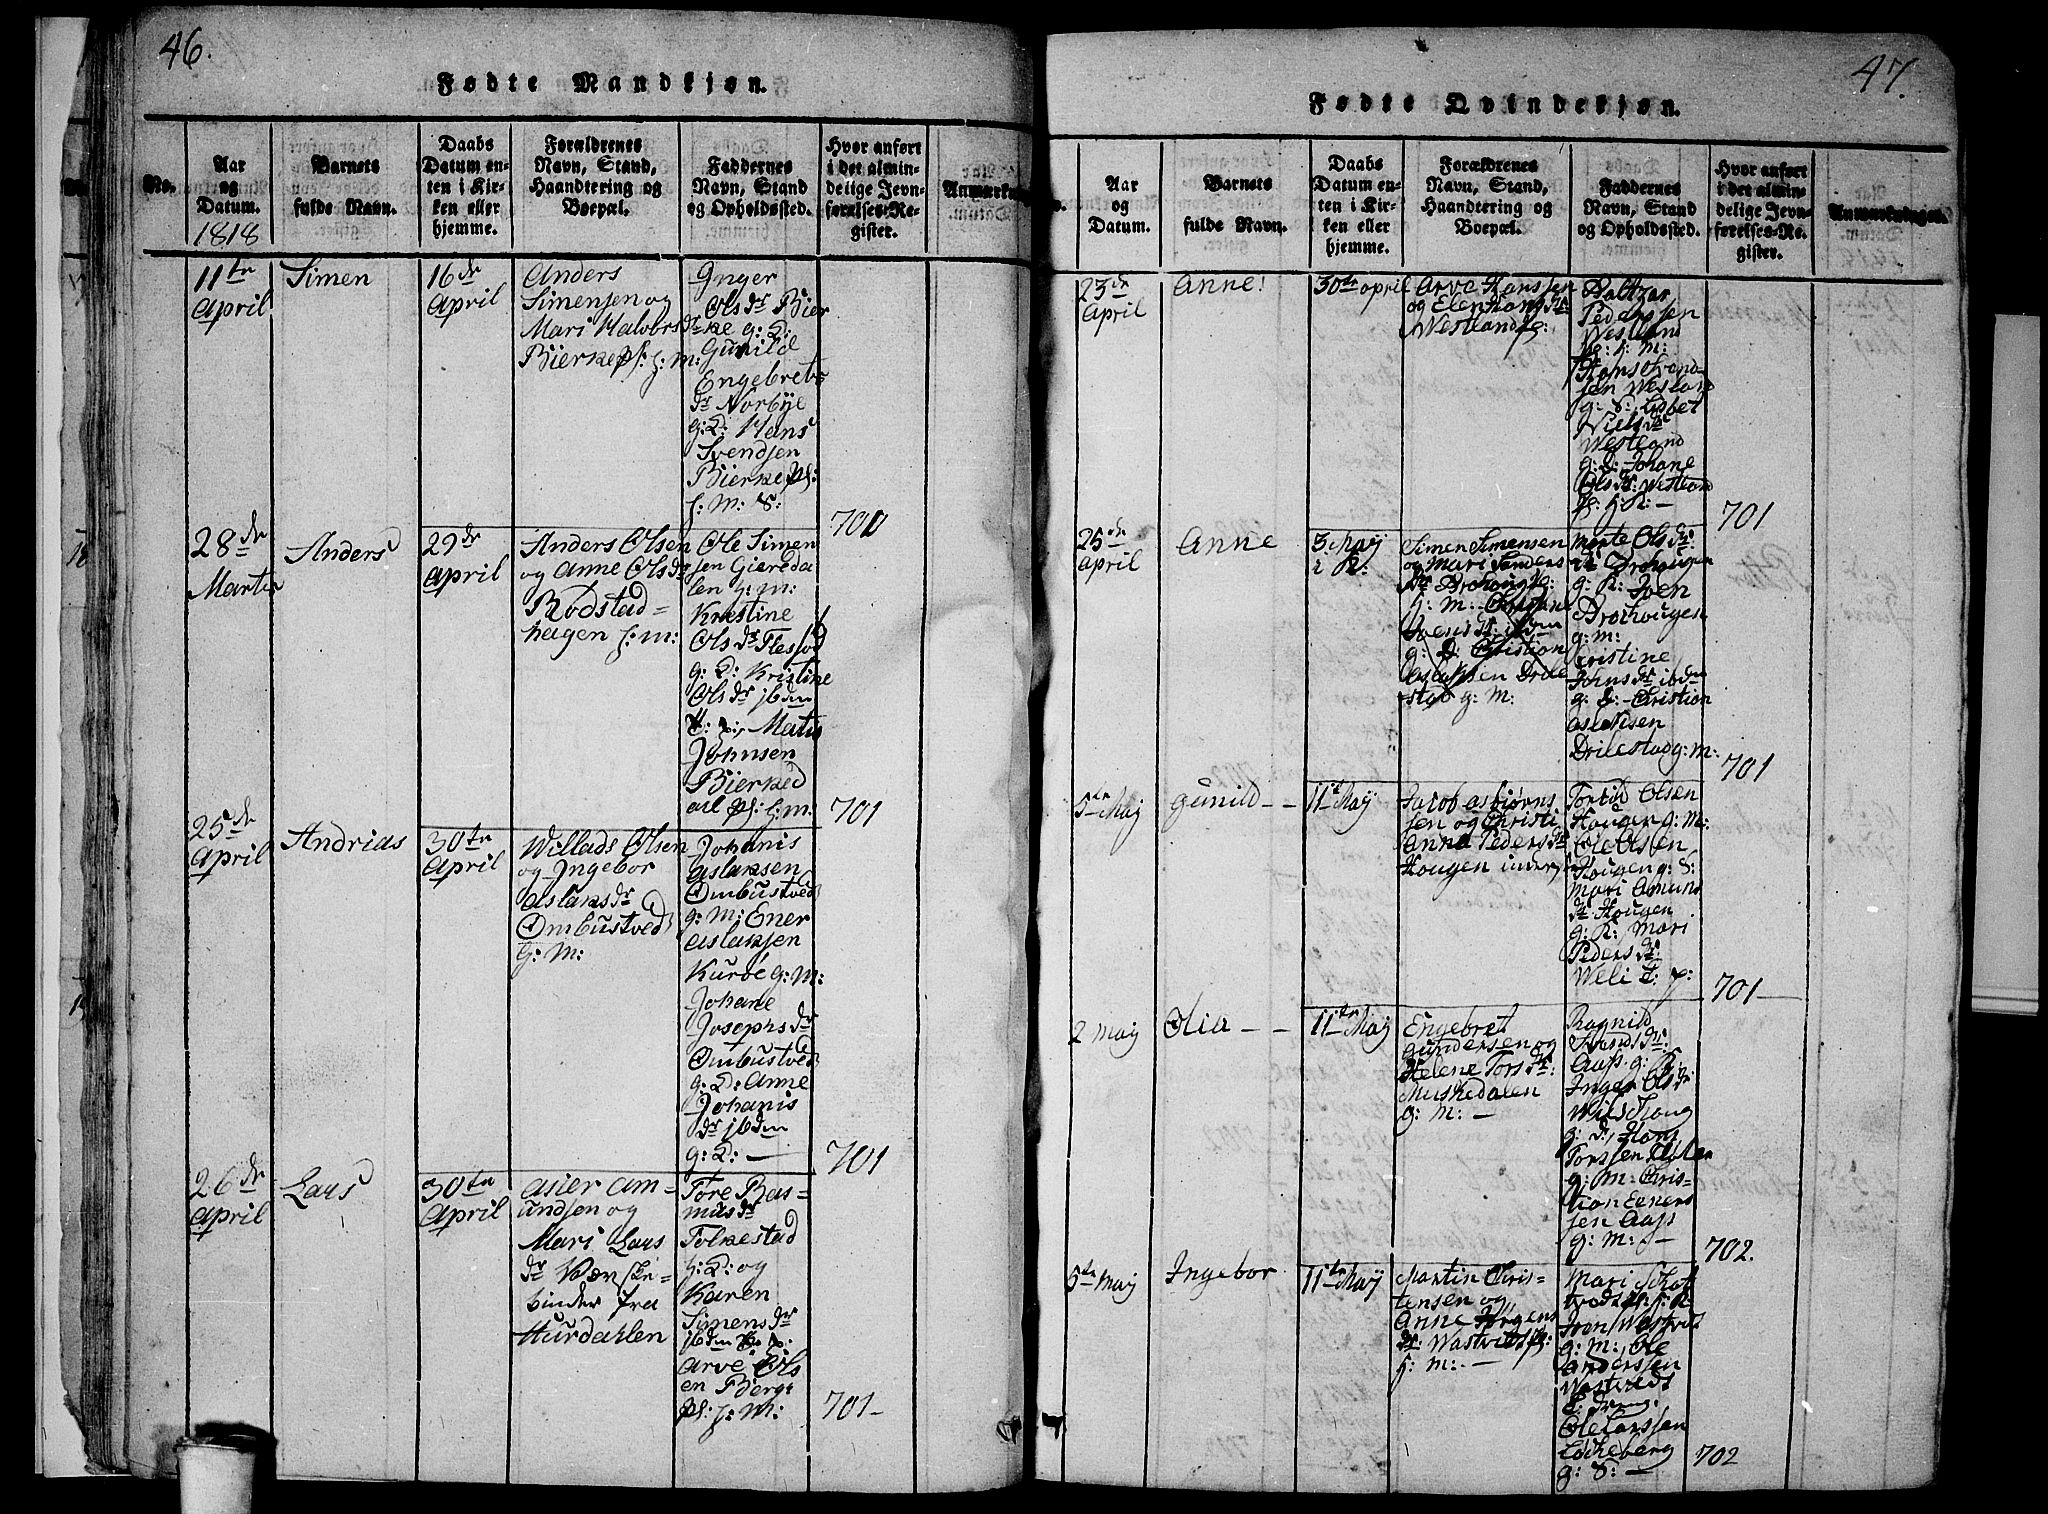 46.
Fødte Mandkjøn.
No.
Aar
og
Datum.
1818
Barnets
fulde Navn.
Daabs
Datum en-
ten i Kir-
ken eller
hjemme.
Forældrenes
Navn, Stand,
Haandtering og
Boepæl.
Faddernes
Navn, Stand
og Opholdssted.
Hvor anført
i det almin-
delige Jevn-
førelses-Re-
gister.
Anmærkn
11te
April
Simen
16de
April
Anders
Simensen og
Mari Halvors dr
Bierke pl: h: M:
Inger
Ols dr Bier
ke g: D:
Gunild
Engebrets
dr Norbye
g: D: Hans
Svendsen
Bierke pl:
h: M: S:
701
28de
Marts
Anders
29de
April
Anders Olsen
og Anne Ols dr
Rodstad-
hagen h: M:
Ole Simen
sen Giereda
len h: M:
Kristine
Ols dr
g: D: Kristine
Ols dr ibdm
Matis
Johnsen
Bierked
ael pl: h: M:
701
25de
April
Andrias
30te
April
Willads Olsen
og Ingebor
Aslaks dr
Ombustved
g: M:
Johanis
Aslaksen
Ombustved
g: M: Ener
Aslaksen
Kuroe g: M:
Johane
Josephs dr
Ombustved
g: D: Anne
Johanis
dr ibdm
g: D: —
701
26de
April
Lars
30te
April
Asler Am-
undsen og
Mari Lars
dr Værske-
binder fra
Hurdahlen
Tore Ras-
mus dr
Folkestad
h: D: og
Karen
Simens dr
ibdm
Arve Ols
en Berg:
pl: h: M:
701-
47.
Fødte Qvindekjøn.
Aar
og
Datum.
Barnets
fulde Navn.
Daabs
Datum en-
ten i Kir-
ken eller
hjemme.
Forældrenes
Navn, Stand,
Haandtering og
Boepæl.
Faddernes
Navn, Stand
og Opholdssted.
Hvor anført
i det almin-
delige Jevn-
førelses-Re-
gister.
Anmærkninger.
23de
April
Anne!
30te April
Arve Hanssen
og Elen Hans dr
Westland pl:
Baltzar
Pederssen
Westland
pl: h: M:
Hans Svend
sen Westlan
g: S: Lisbet
Niels dr
Westland
g: D: Johane
Ols dr Westlan
pl: h: K: —
701
25de
April
Anne
3 Maÿ
i K:
Simen Simensen
og Mari Anders
dr Brohoug pl:
h: M: Christine
Joens dr ibdm
g: D: Christion
Aslaksen Drile
stad g: M:
Marte Ols dr
Brohougen
g: K: Joen
Brohougen
g: M:
Cristine
Johns dr ibdm
g: D: Christion
Aslaksen
Drilestad g: M:
701
5te Maj
Gunild - -
11te Maÿ
Jacob Asbiørns
sen og Christi
Anna Peders dr
Hougen inderst
Torkild Olsen
Hougen g: M:
Ole Olsen
Hougen g: S:
Mari Amun
dr Hougen
g: K: Mari
Peders dr
Weli T: p:
701-
2 Maij
Olia - -
11te Maÿ
Engebret
Gundersen og
Helene Tors dr:
Muskedalen
g: M: —
Ragnild
Svends dr:
Aas g: K:
Inger Ols dr
g: D: Hans
Torssen
g: M: Chris-
tion Eeners
sen Aas
g: M: —
702.
5te Maij
Ingebor
11te Maÿ
Martin Chris-
tensen og
Anne Jørgens
dr: Wastvids pl:
h: M: —
Mari
Iven Wastvid
g: M: Ole
Anderssen
Wastveds
E: Dreng:
Ole Larssen
Løcheberg
g: S: —
702